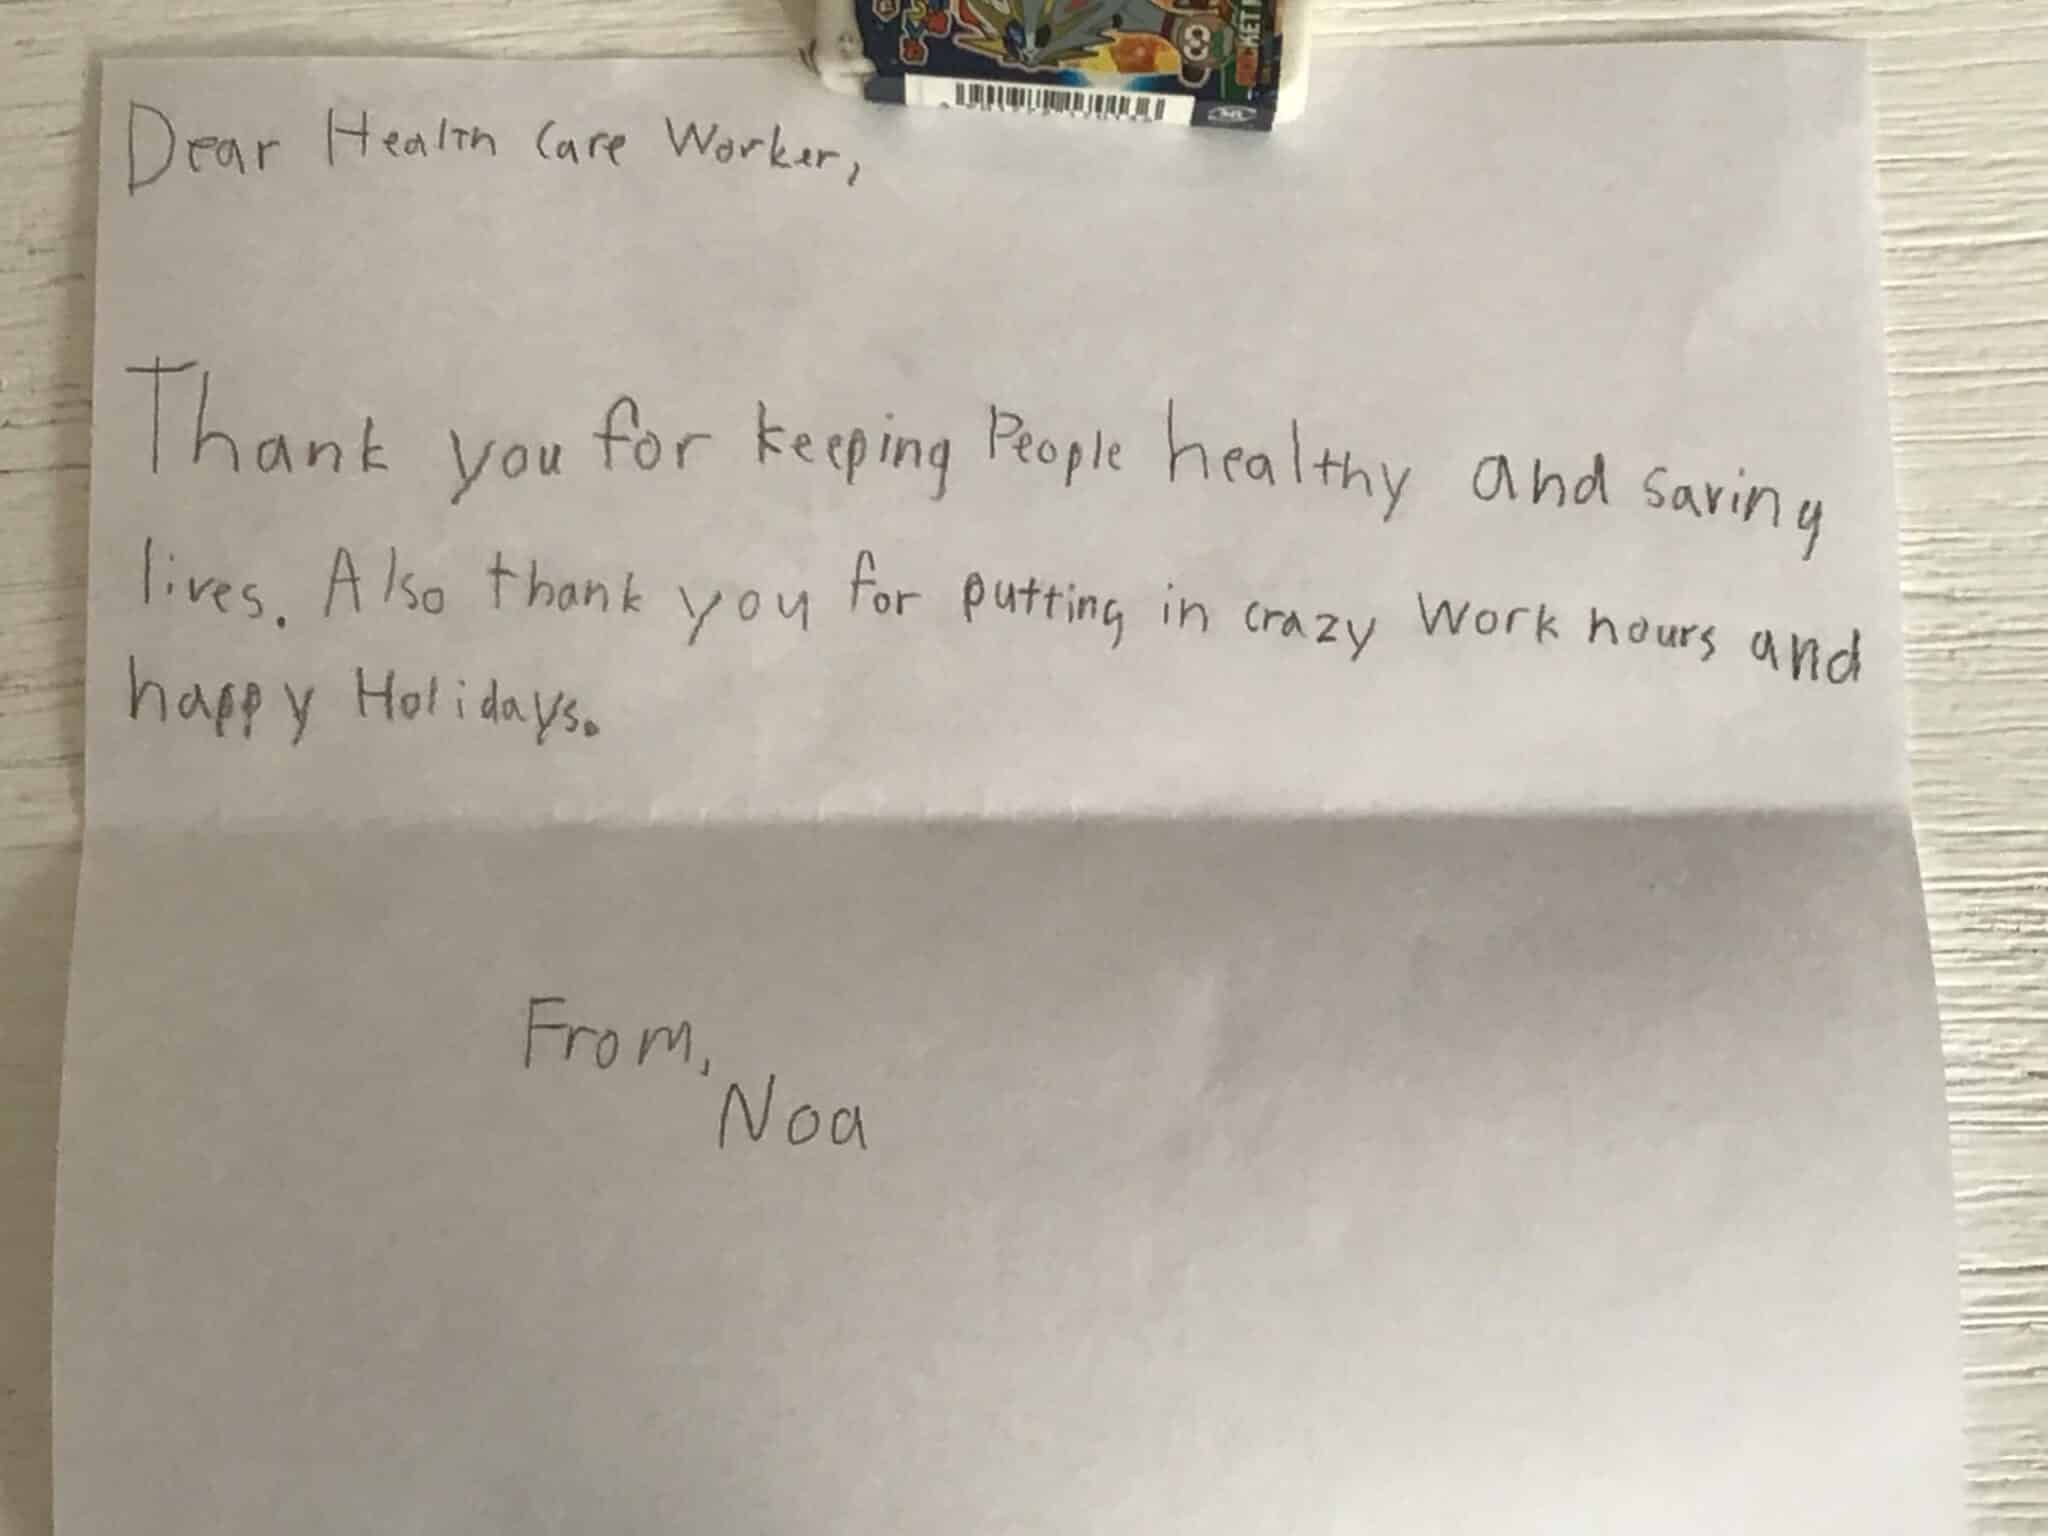 Dear Health Care Worker,
Thank you for keeping People healthy and saving
lives. Also thank you for putting in crazy Work hours and
happy Holidays.
From,
Noa